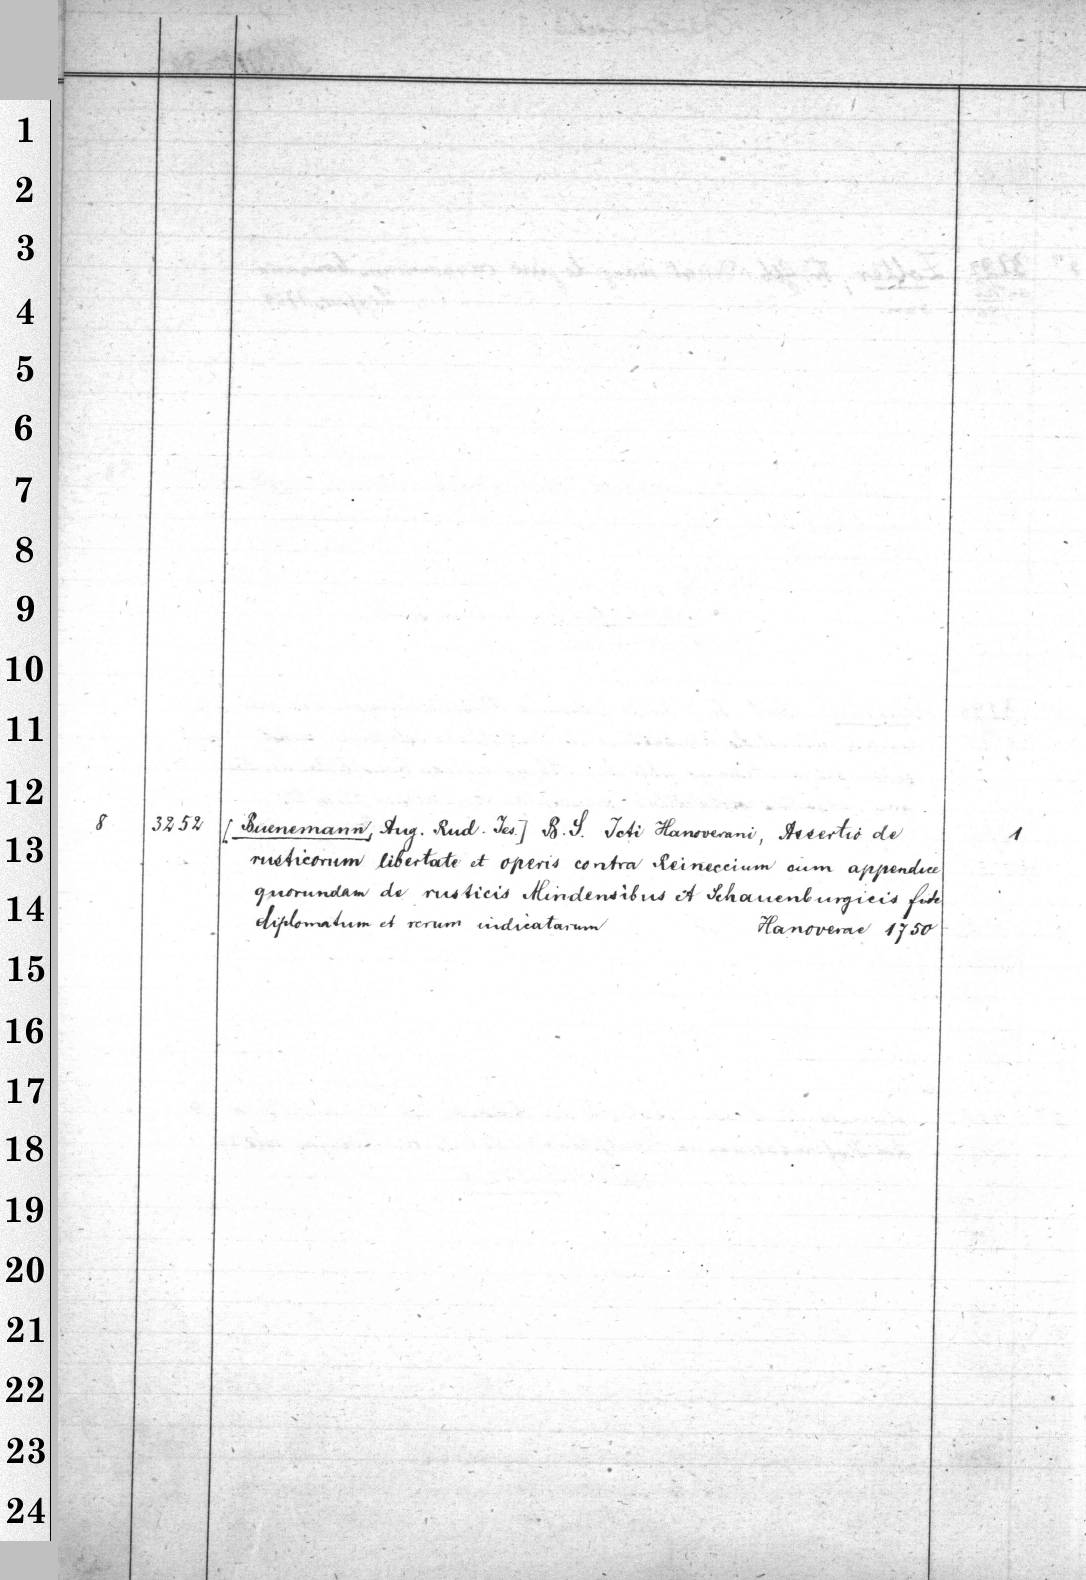 1
2
3
4
5
6
7
8
9
10
11
12
8 3252 [Buenemann, Aug. Rud. Jes.] B. S. Icti Hanoverani, Assertio de 1
13
rusticorum libertate et operis contra Reineccium cum appendice
quorundam de rusticis Mindensibus et Schauenburgicis fide
14
diplomatum et rerum indicatarum Hanoverae 1750
15
16
17
18
19
20
21
22
23
24